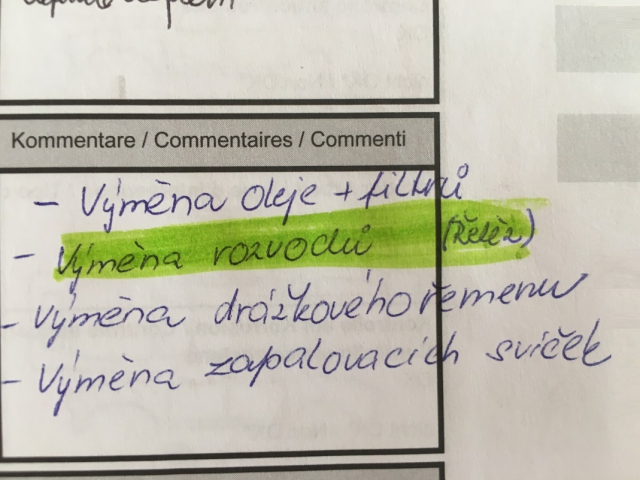 Kommentare / Commentaires / Commenti
- Výměna oleje + filtrů
- Výměna rozvodů (Řetěz)
- Výměna drážkového řemenu
- Výměna zapalovacích svíček